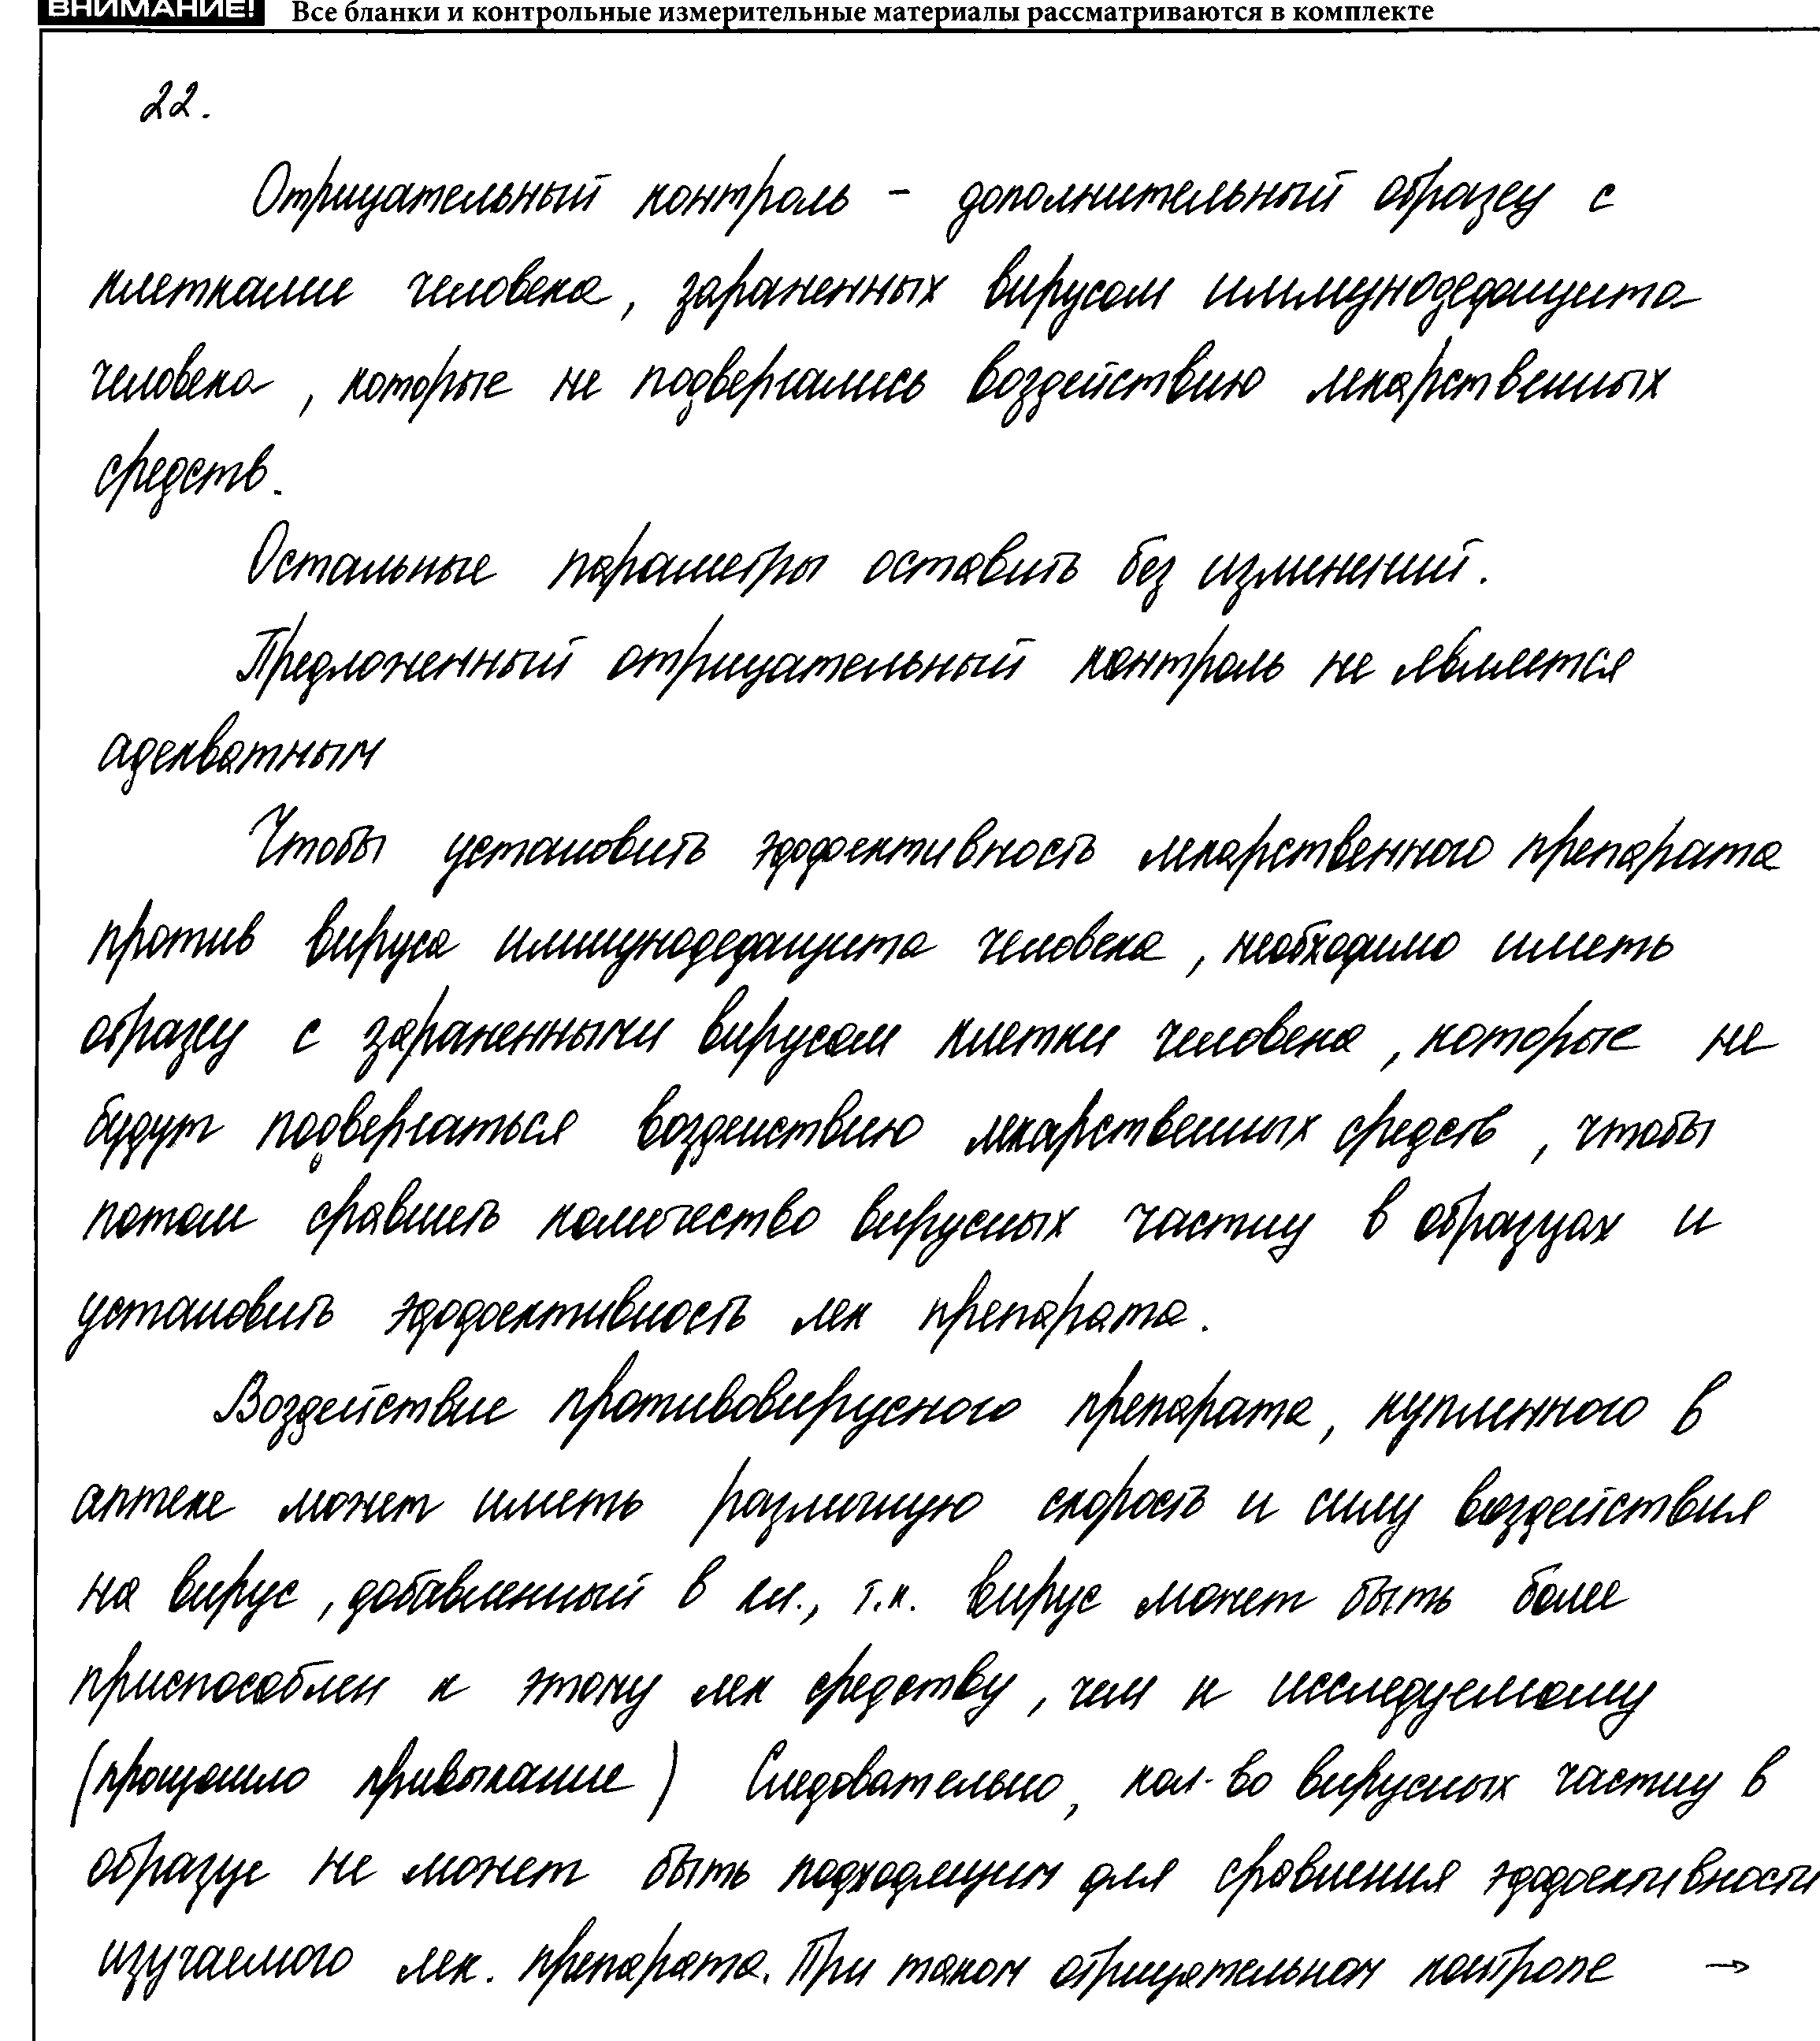 ВНИМАНИЕ! Все бланки и контрольные измерительные материалы рассматриваются в комплекте
22.
Отрицательный контроль – дополнительный образец с
клетками человека, зараженных вирусом иммунодефицита
человека, которые не подвергались воздействию лекарственных
средств.
Остальные параметры оставить без изменений.
Предложенный отрицательный контроль не является
адекватным
Чтобы установить эффективность лекарственного препарата
против вируса иммунодефицита человека, необходимо иметь
образец с зараженными вирусом клетки человека, которые не
будут подвергаться воздействию лекарственных средств, чтобы
потом сравнить количество вирусных частиц в образцах и
установить эффективность лек препарата.
Воздействие противовирусного препарата, купленного в
аптеке может иметь различную скорость и силу воздействия
на вирус, добавленный в кл., т.к. вирус может быть более
приспособлен к этому лек средству, чем к исследуемому
(произошло привыкание) Следовательно, кол-во вирусных частиц в
образце не может быть подходящим для сравнения эффективности
изучаемого лек. препарата. При таком отрицательном контроле →